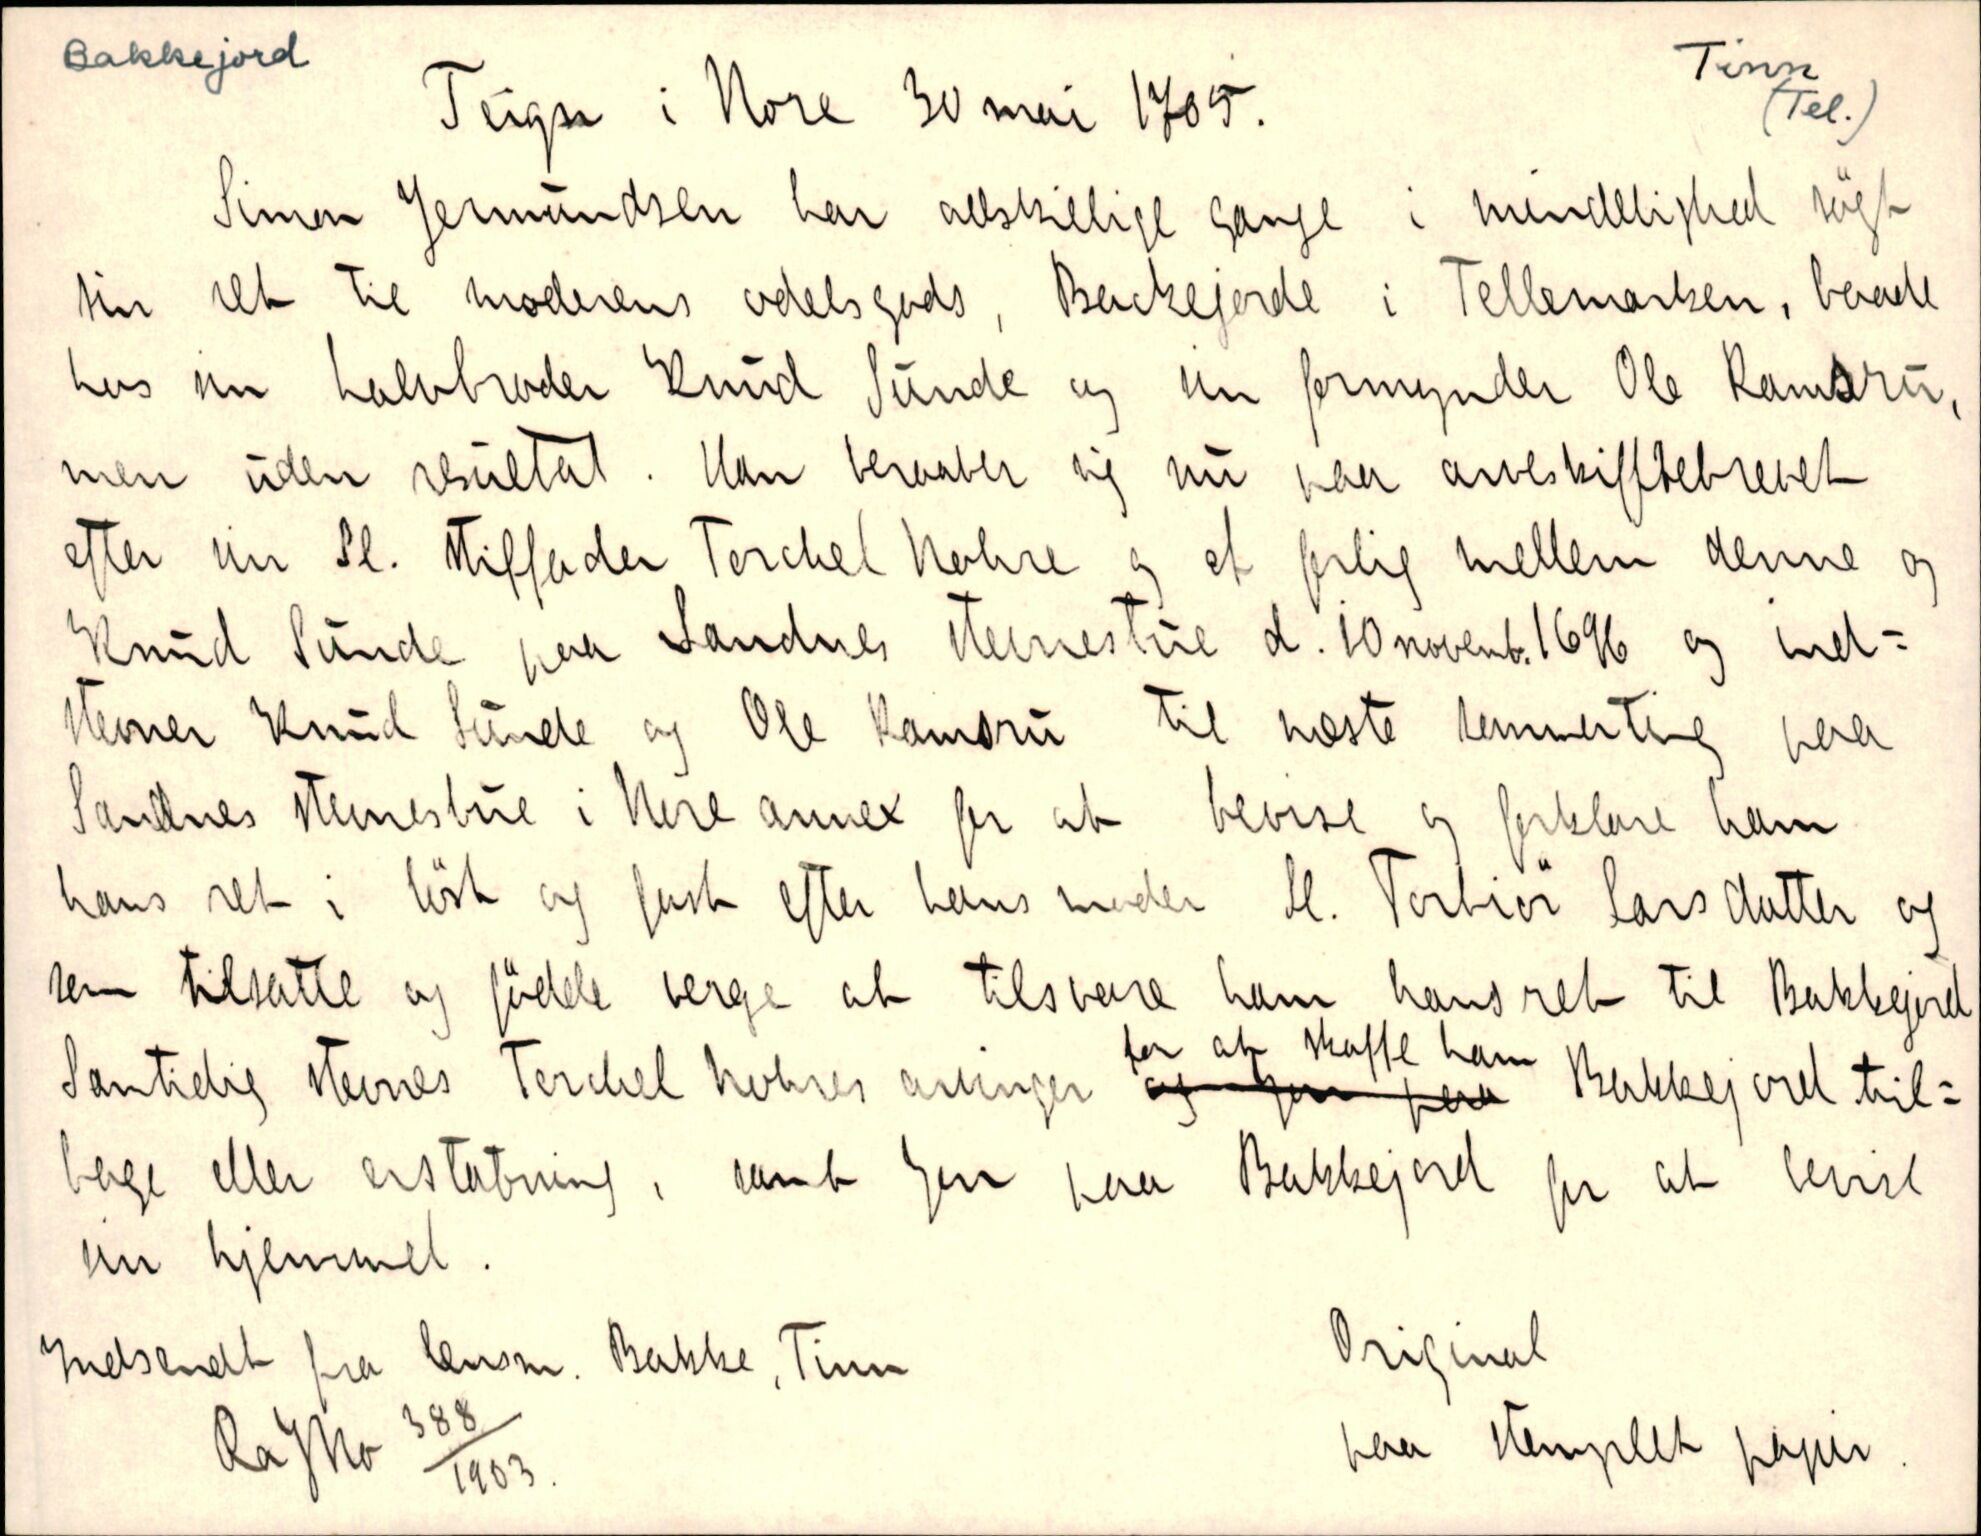 Bakkejord
Tinn
(Tel.)
Teigen i Nore 30 mai 1705.
Simen Jermundsen har adskillige gange i mindelighed søgt
sin ret til moderens odelsgods, Backejorde i Tellemarken, baade
hos sin halvbroder Knud Sunde og sin formynder Ole Ramsru,
men uden resultat. Han beraaber sig nu paa arveskiftebrevet
efter sin Sl. stiffader Torchel Nohre og et forlig mellem denne og
Knud Sunde paa Sandnes stevnestue d. 10 novemb. 1696 og ind=
stevner Knud Sunde og Ole Ramsru til næste sommerting paa
Sandnes stevnestue i Nore annex for at bevise og forklare ham
hans ret i løst og fast efter hans moder Sl. Torbiör Larsdatter og
som tilsatte og födde verge at tilsvare ham hans ret til Bakkejord
Samtidig stevnes Torchel Nohres arvinger for at skaffe ham Bakkejord til=
bage eller erstatning, samt Jon paa Bakkejord for at bevise
sin hjemmel.
Indsendt fra lensm. Bakke, Tinn
Original
RaJNo 388/1903.
paa stemplet papir.